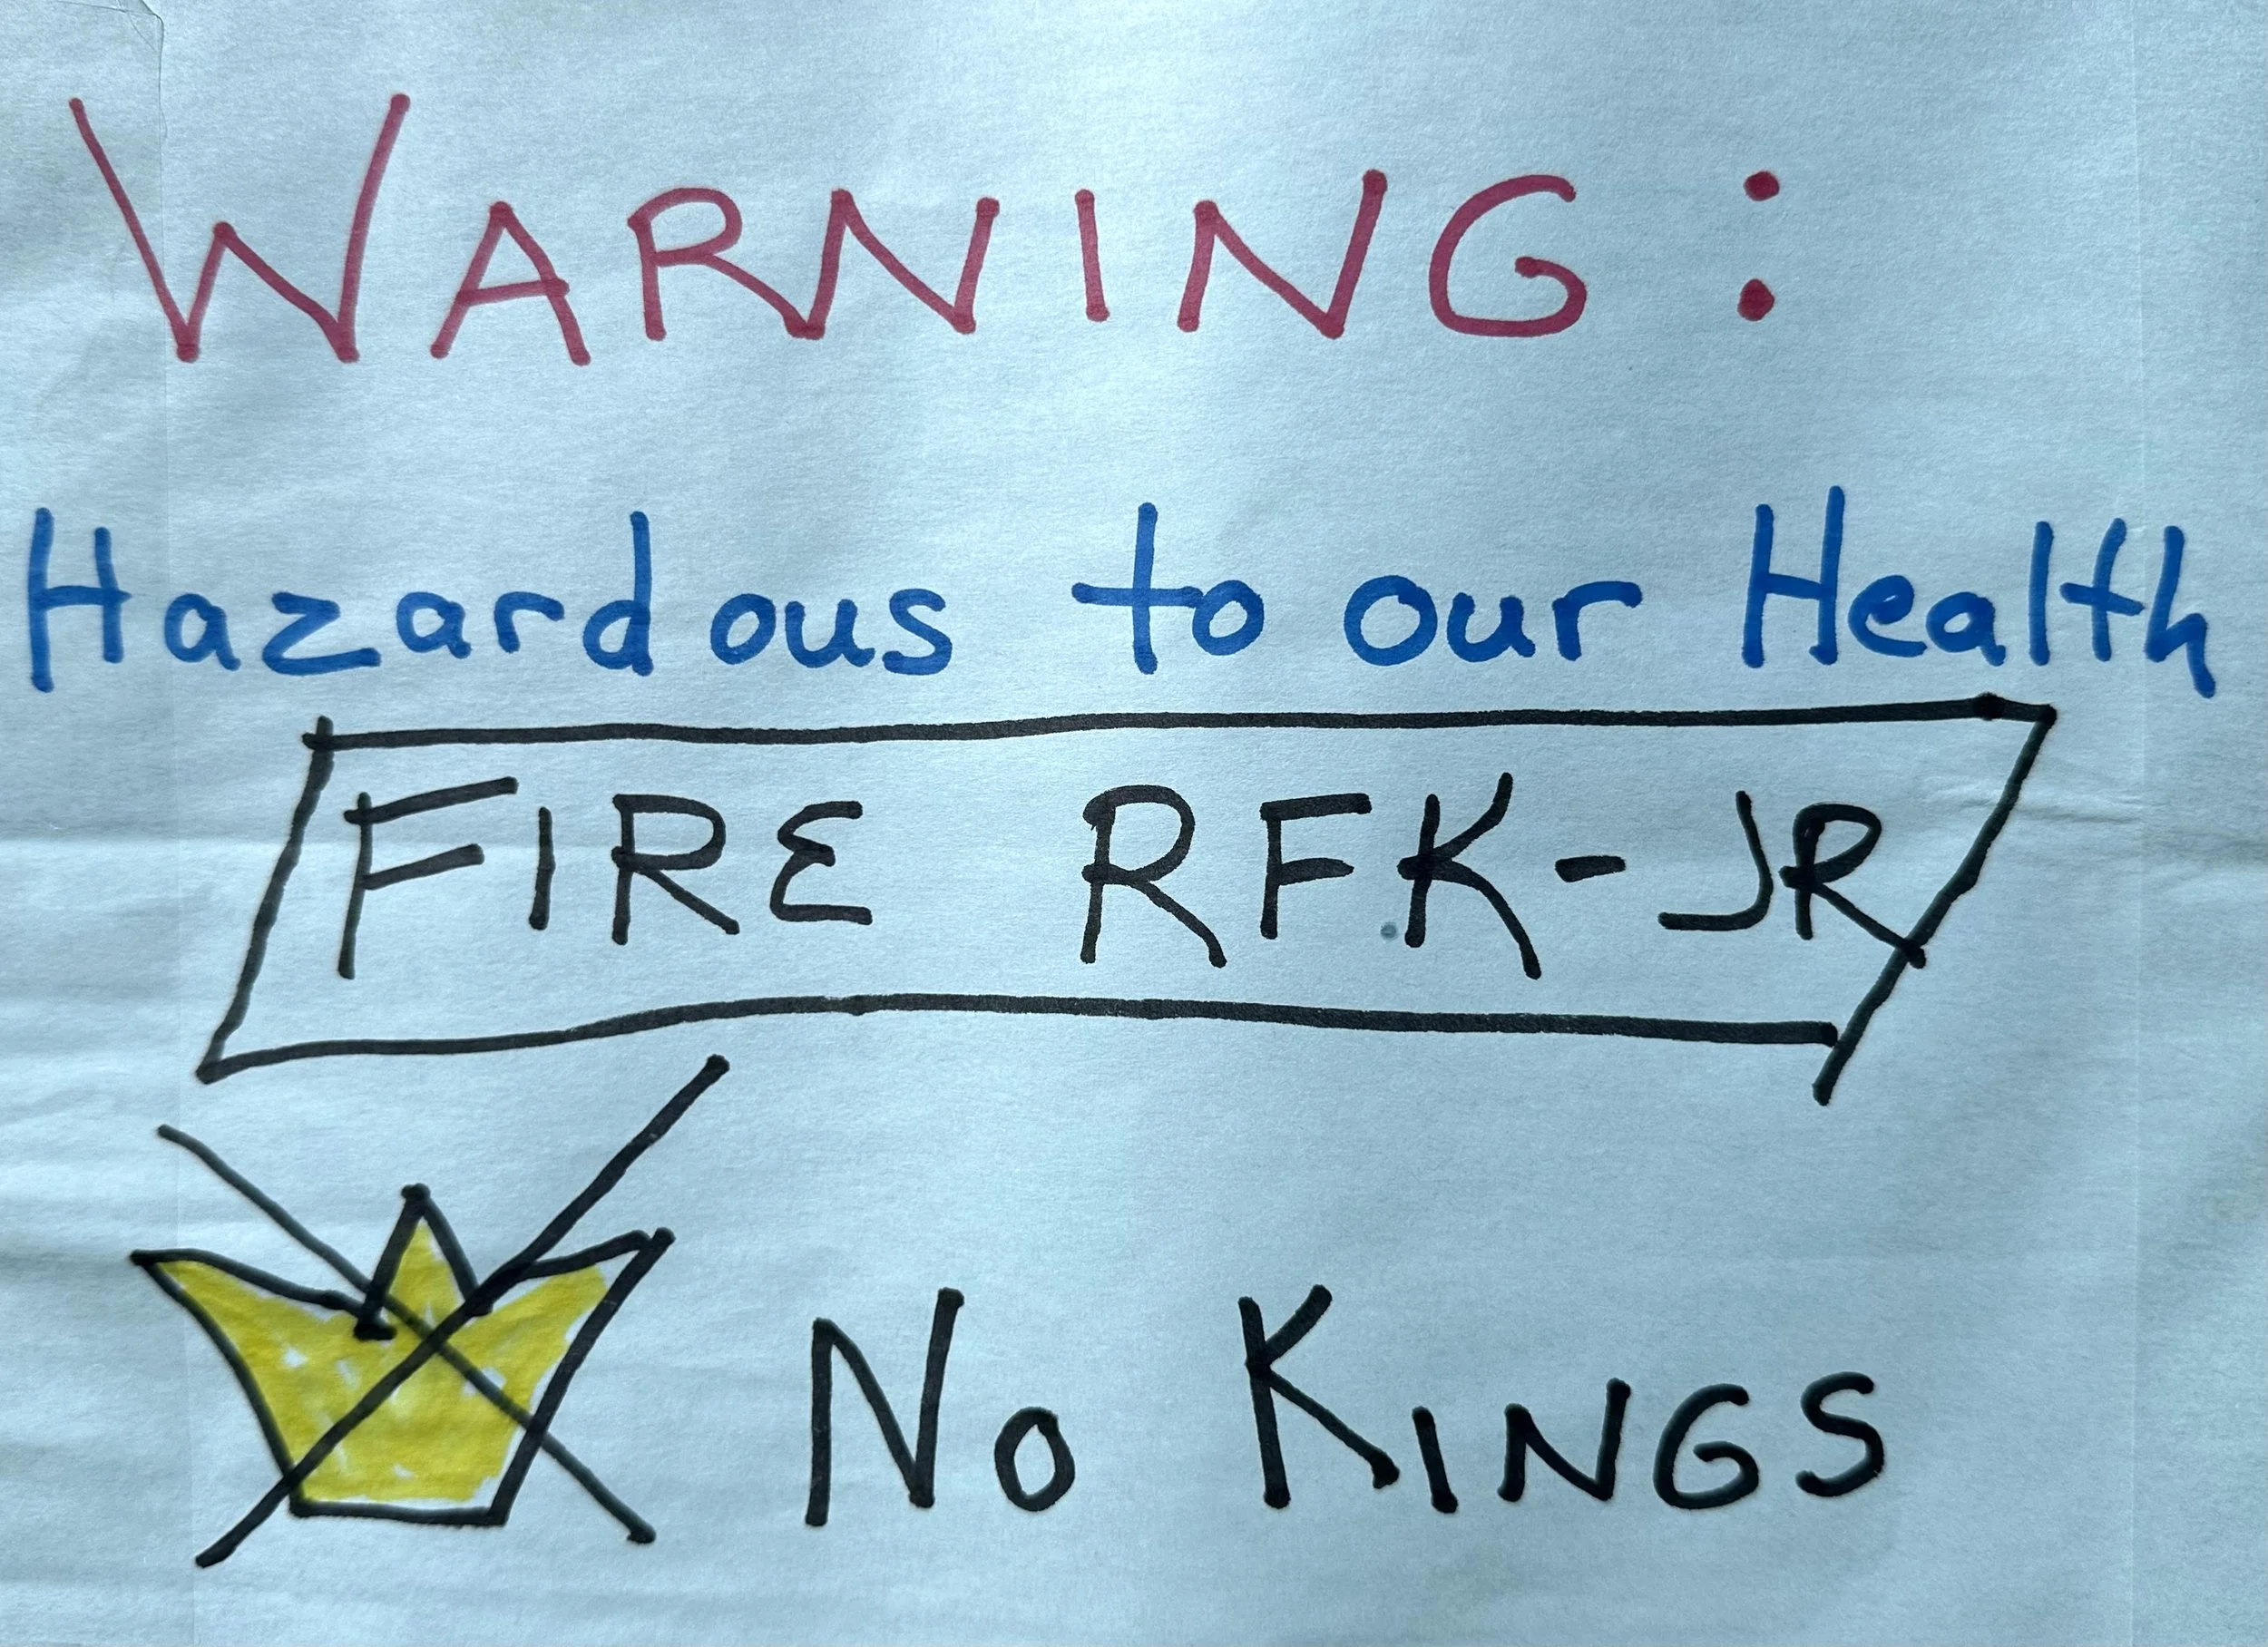 WARNING:
Hazardous to our Health
FIRE RFK-JR
No KINGS